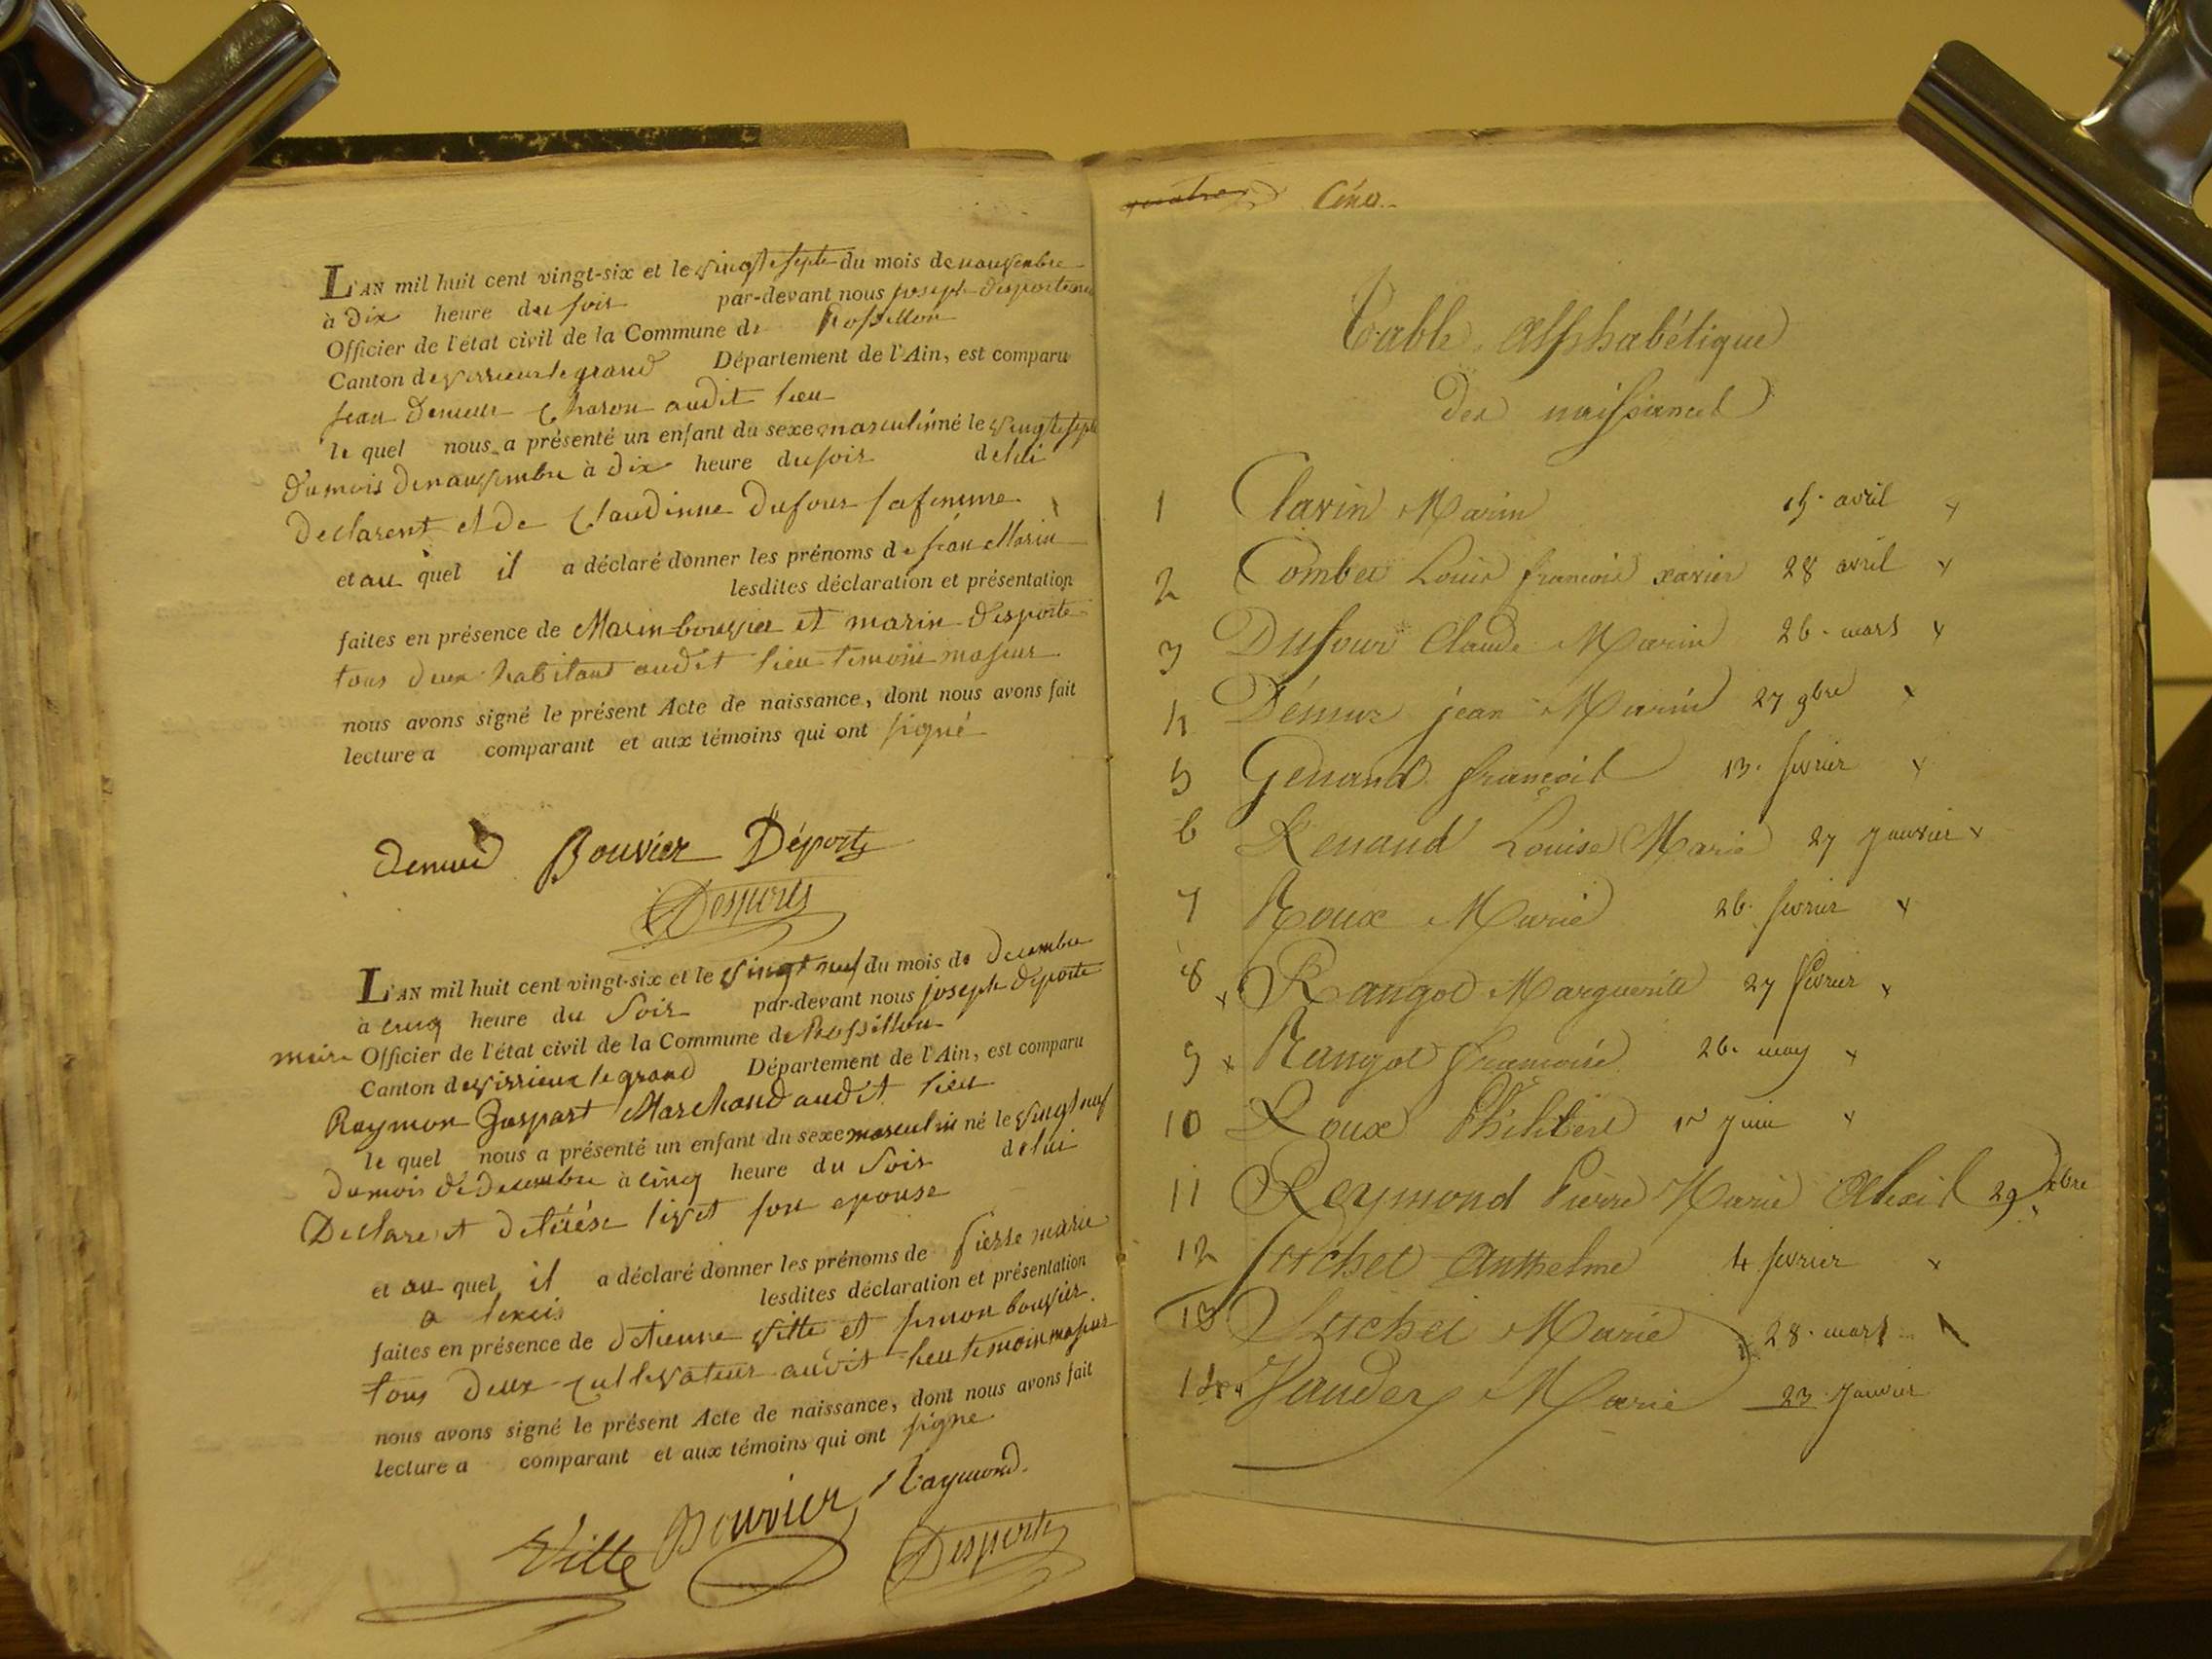 L'AN mil huit cent vingt-six et le vingt septe du mois de nouvembre
à dix heure du soir par-devant nous joseph desporte
Officier de l'état civil de la Commune de Rossillon
Canton de virieux le grand Département de l'Ain, est comparu
jean Demeur Charon audit lieu
le quel nous a présenté un enfant du sexe masculin né le vingt septe
du mois de nauvembre à dix heure du soir de lui
declarent et de Claudinne Dufour sa femme
et au quel il a déclaré donner les prénoms de jean Marin
lesdites déclaration et présentation
faites en présence de Marin bouvier et marin desporte
tous deux habitant audit lieu temoin majeur
nous avons signé le présent Acte de naissance, dont nous avons fait
lecture a comparant et aux témoins qui ont signé
Bouvier Déporte
Desportes
L'AN mil huit cent vingt-six et le vingt neuf du mois de decembre
à cinq heure du Soir par-devant nous joseph deporte
maire Officier de l'état civil de la Commune de Rossillon
Canton de virrieux le grand Département de l'Ain, est comparu
Raymon Gaspart Marchand audit lieu
le quel nous a présenté un enfant du sexe masculin né le vingt neuf
du mois de decembre à cinq heure du Soir de lui
Declare et de livet son epouse
et au quel il a déclaré donner les prénoms de pierre marie
a lexcis lesdites déclaration et présentation
faites en présence de detienne ville et bouvier
tous deux cultivateur audit lieu temoin majeur
nous avons signé le présent Acte de naissance, dont nous avons fait
lecture a comparant et aux témoins qui ont signe
Ville Bouvier Raymond.
Desportes
quatre Cinq
Table Alphabétique
des naissances
1 Clavin Marin 15 avril
2 Combet Louis françois xavier 28 avril
3 Dufour Claude Marin 26 mars
4 Démur jean Marin 27 9bre
5 Genand françois 13 février
6 Renand Louise Marie 27 janvier
7 Roux Marie 26 février
8 Rangot Marguerite 27 février
9 Rangot françoise 26 may
10 Roux Philibert 1er juin
11 Reymond Pierre Marie Alexis 29 xbre
12 Suchet Anthelme 4 février
13 Suchet Marie 28 mars
14 Marie 23 janvier